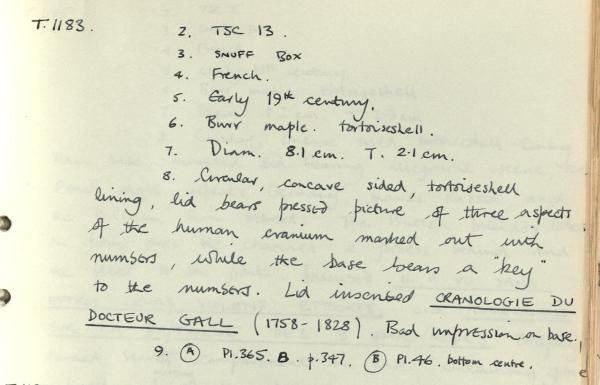 T.1183.
2. TSC 13.
3. SNUFF BOX
4. French.
5. Early 19th century.
6. Burr maple. tortoiseshell.
7. Diam. 8.1 cm. T. 2.1 cm.
8. Circular, concave sided, tortoiseshell
lining, lid bears pressed picture of three aspects
of the human cranium marked out with
numbers, while the base bears a "key"
to the numbers. Lid inscribed CRANOLOGIE DU
DOCTEUR GALL (1758-1828). Bad impression on base.
9. (A) Pl.365. B. p.347. (B) Pl.46. bottom centre.